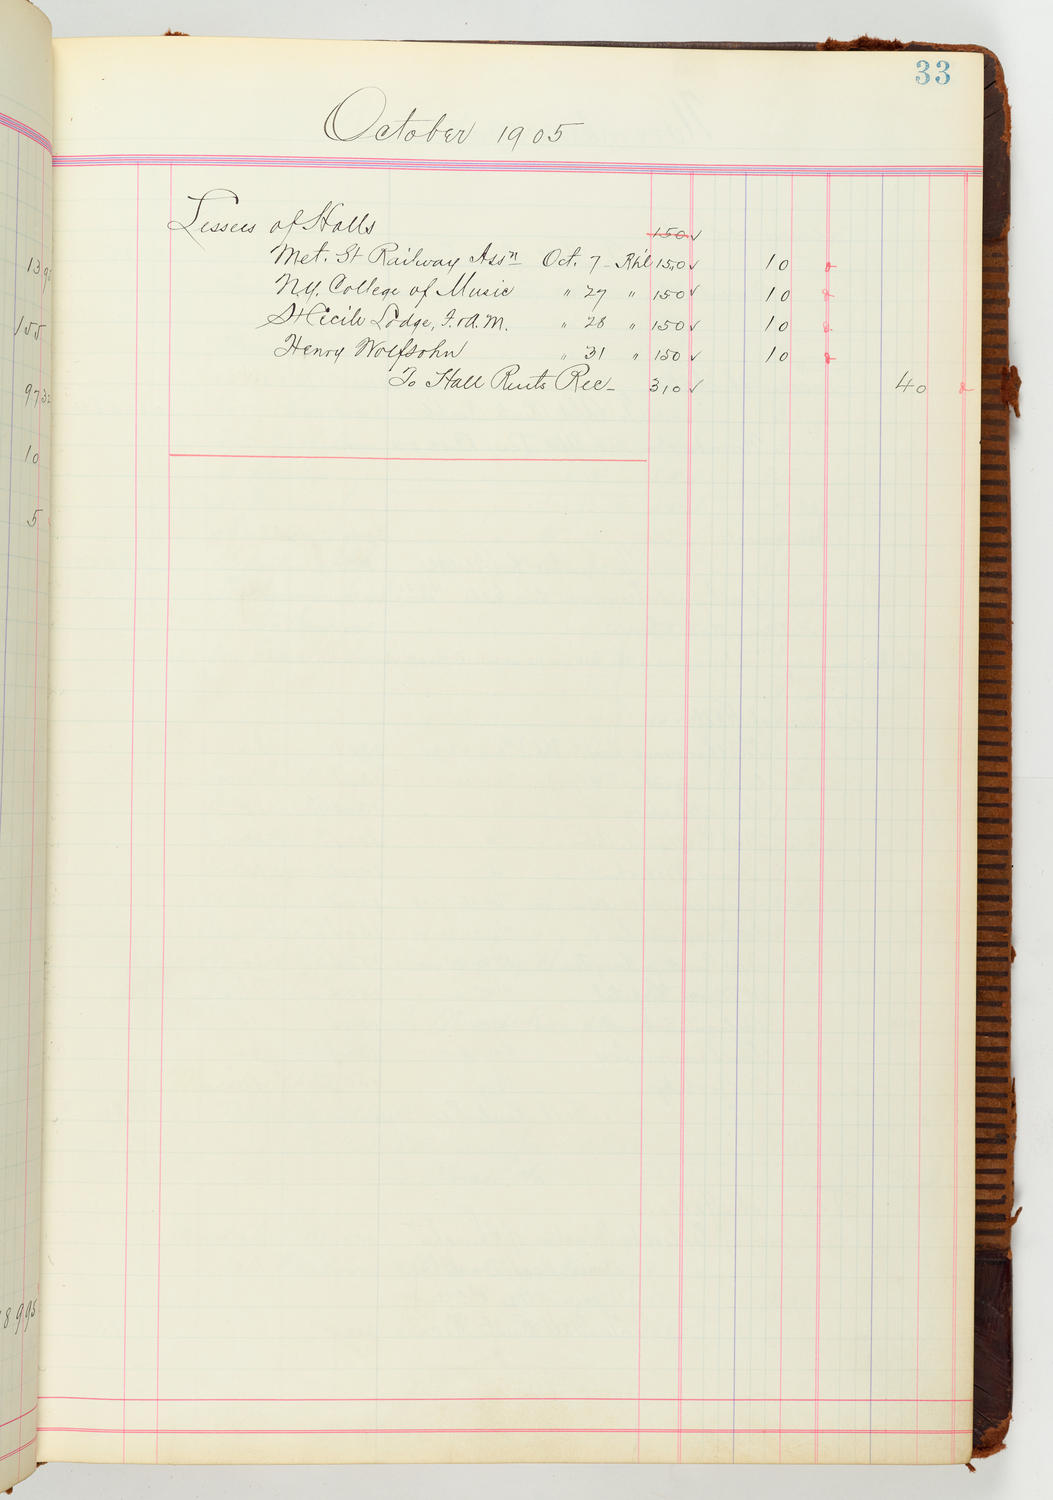 33
October 1905
Lessees of Halls 150 ✓
Met. St Railway Ass'n Oct. 7 - Rh'l 150 ✓ 10
N.Y. College of Music " 27 " 150 ✓ 10
St Cecile Lodge, F. & A.M. " 28 " 150 ✓ 10
Henry Wolfsohn " 31 " 150 ✓ 10
To Hall Rents Rec - 310 ✓ 40
155
10
5